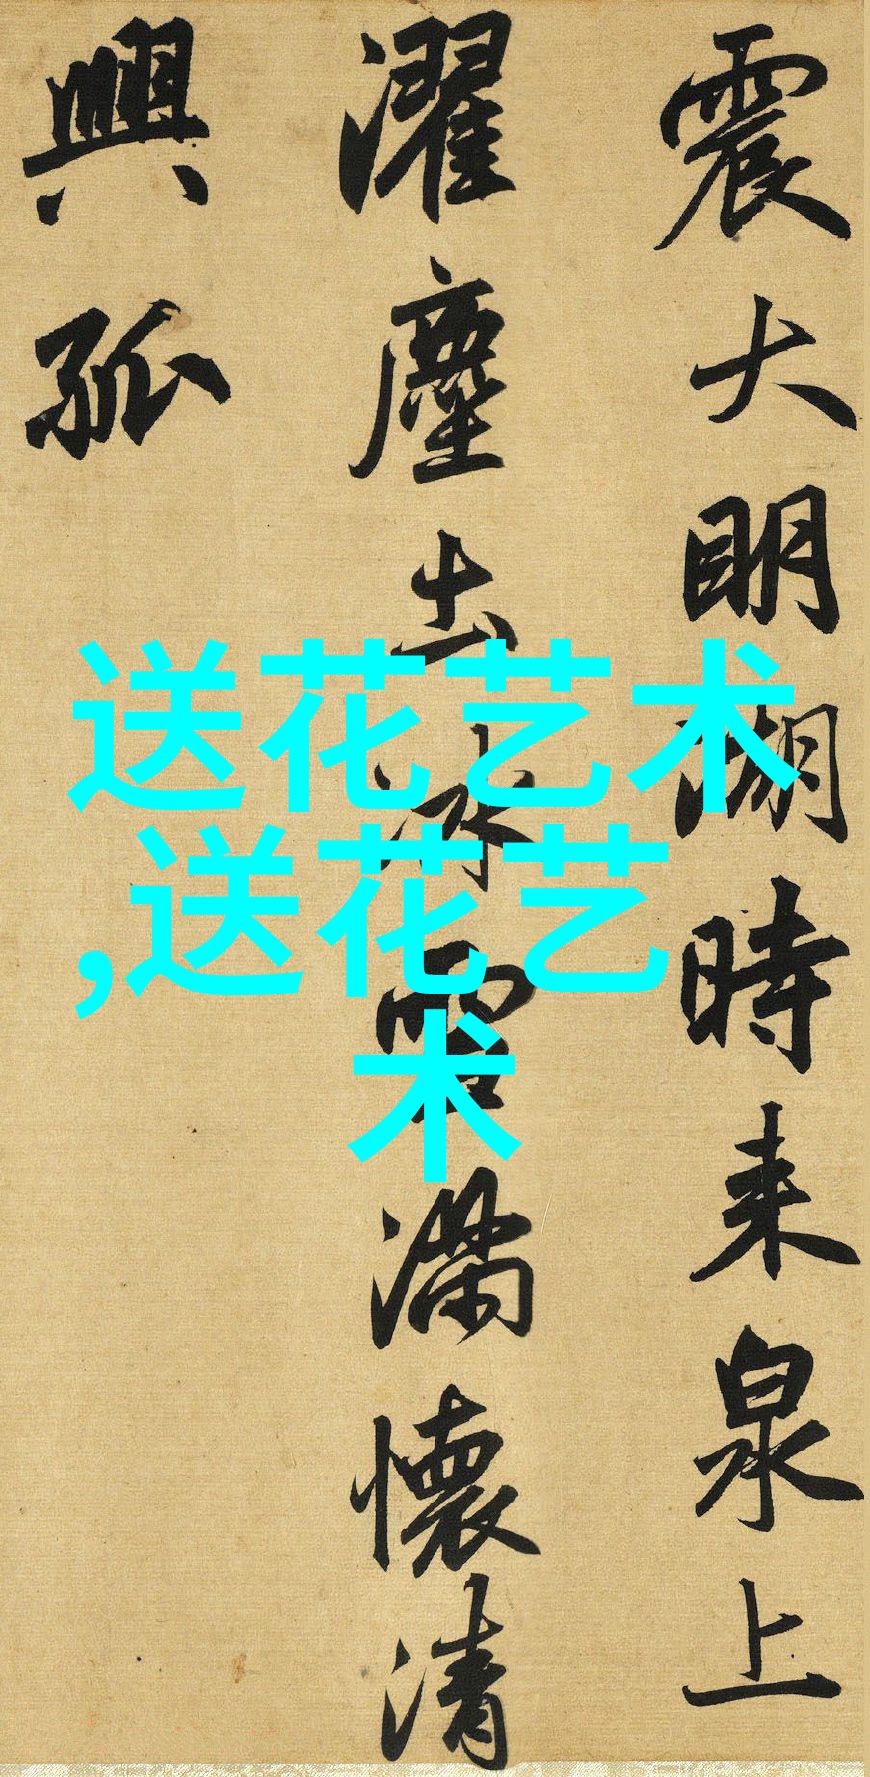 震大明湖時来泉上
濯塵土冰雪滿懷清
興孤
送花艺术
,送花艺
术